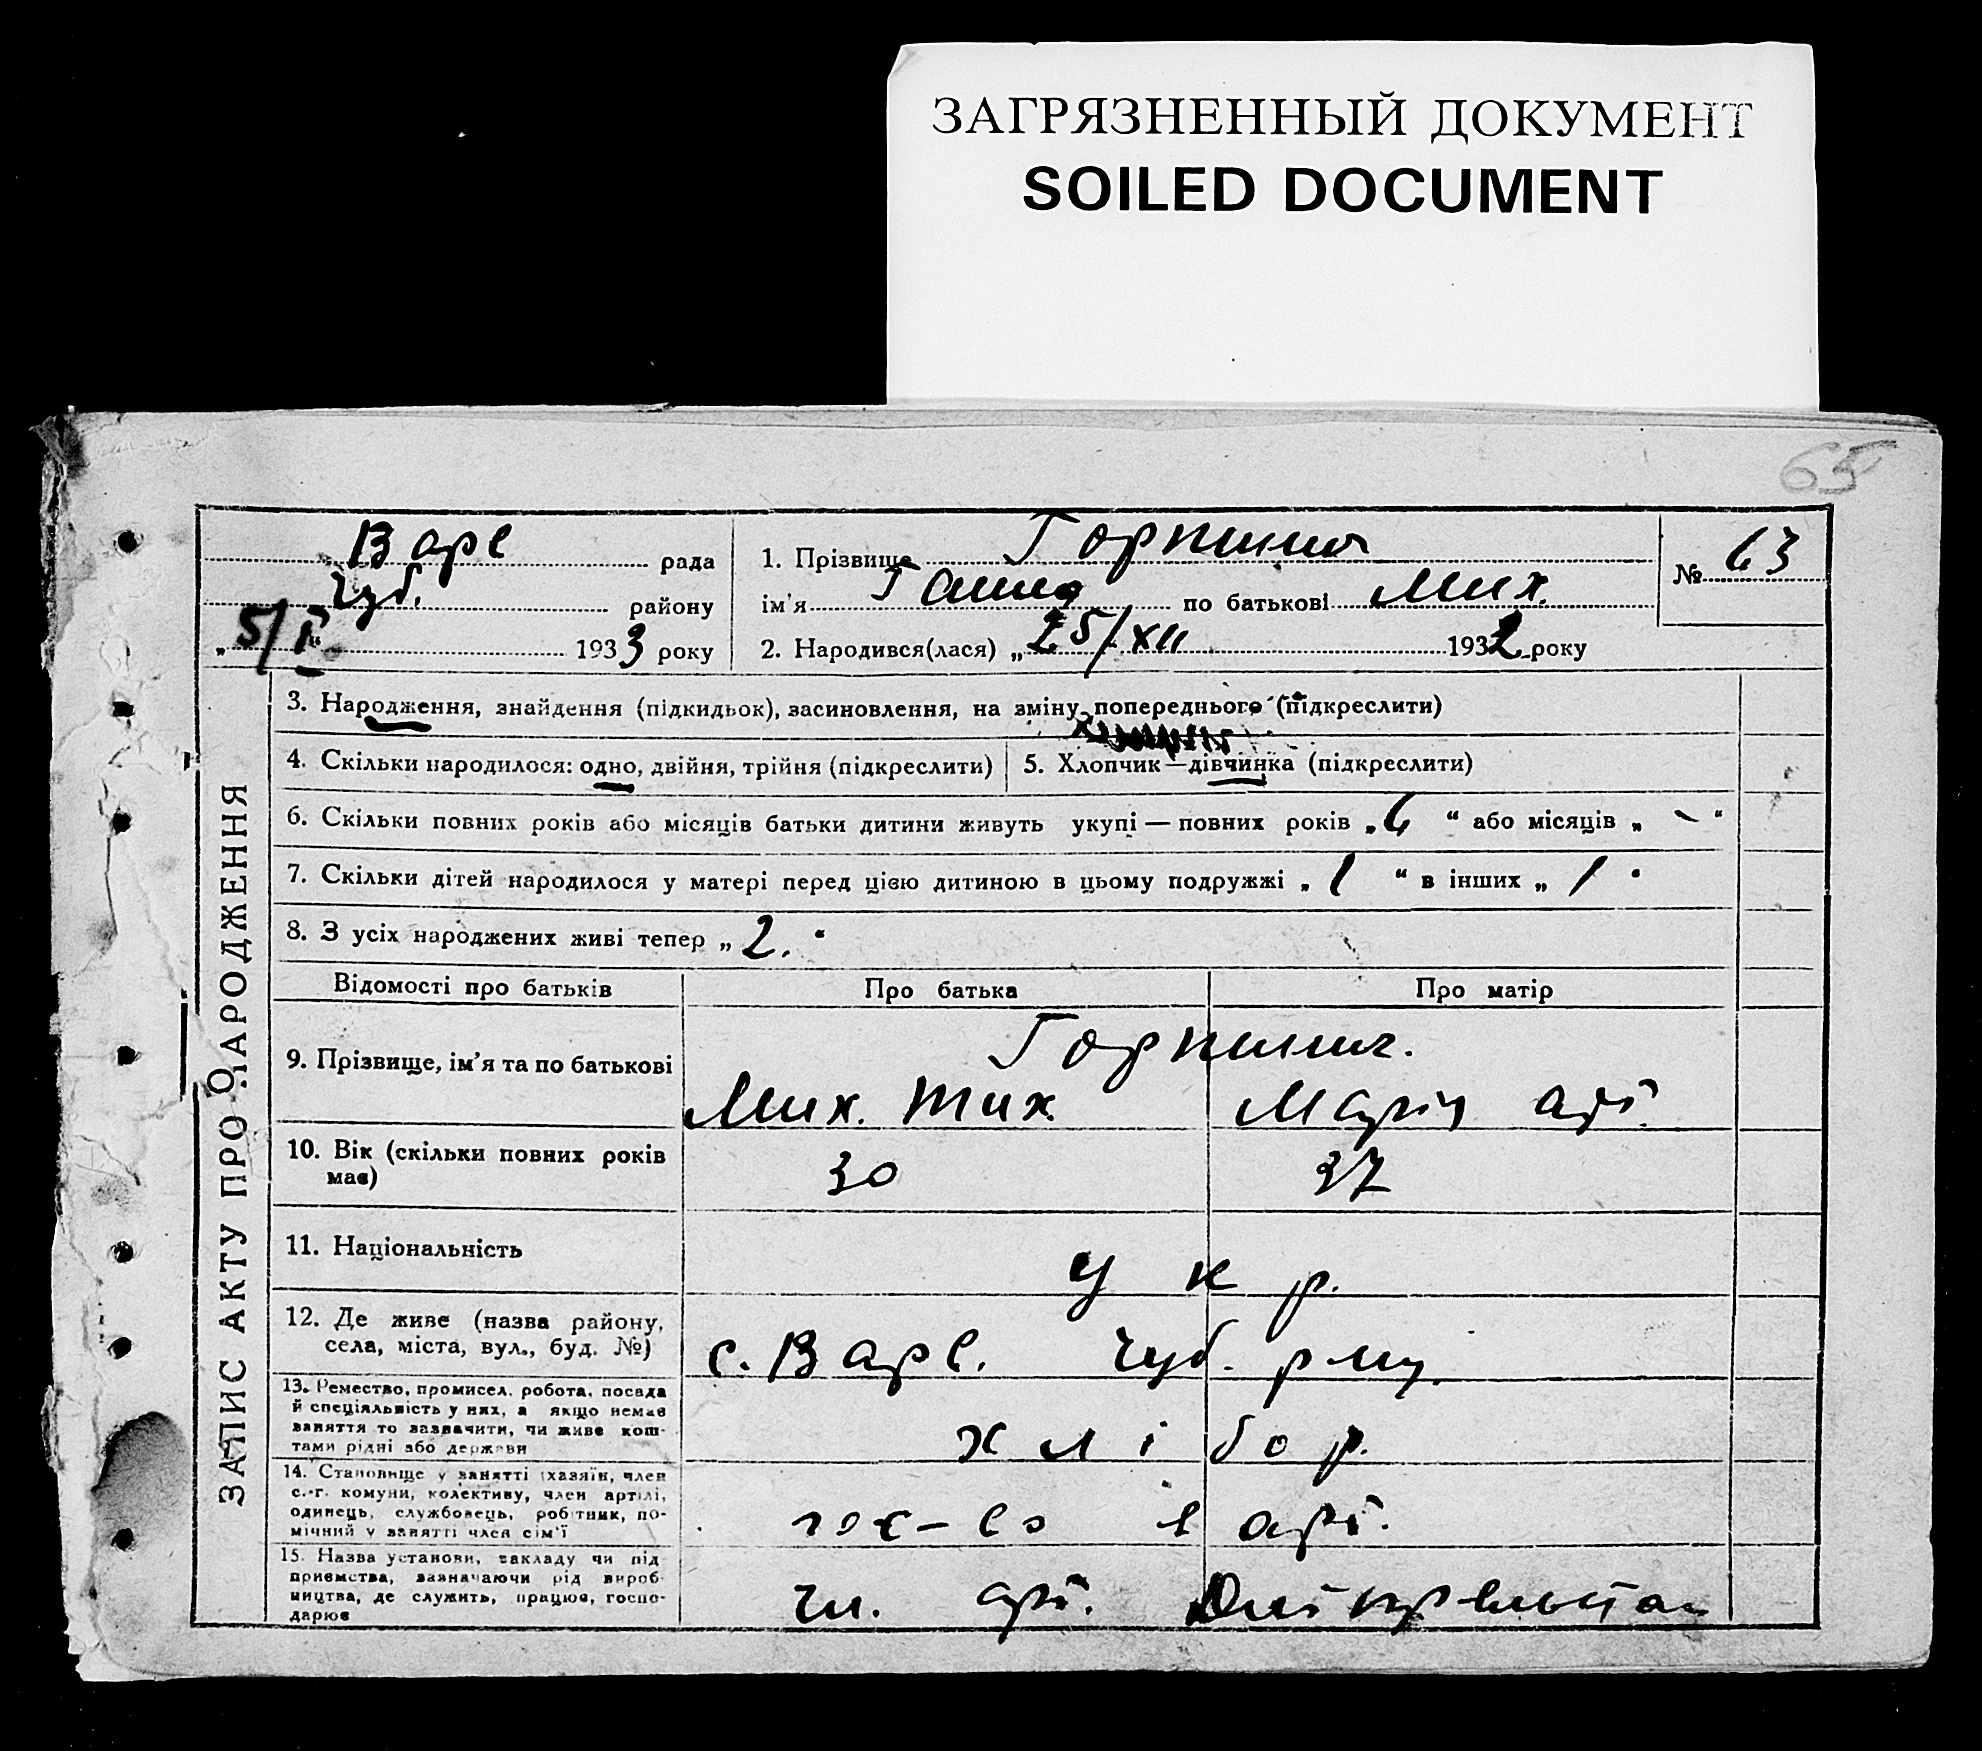 ЗАГРЯЗНЕННЫЙ ДОКУМЕНТ
SOILED DOCUMENT
65
Варв рада
Чуб. району
„5/I“ 1933 року
1. Прізвище
ім'я Ганна по батькові Мих.
2. Народився(лася) „25/XII 1932 року
№ 63
ЗАПИС АКТУ ПРО НАРОДЖЕННЯ
3. Народження, знайдення (підкидьок), засиновлення, на зміну попереднього (підкреслити)
4. Скільки народилося: одно, двійня, трійня (підкреслити)
5. Хлопчик—дівчинка (підкреслити)
6. Скільки повних років або місяців батьки дитини живуть укупі — повних років „ “ або місяців „ – “
7. Скільки дітей народилося у матері перед цією дитиною в цьому подружжі „ 1 “ в інших „ 1 “
8. З усіх народжених живі тепер „ 2. “
Відомості про батьків Про батька Про матір
9. Прізвище, ім'я та по батькові
Мих. Тих. Марія
10. Вік (скільки повних років має) 30 37
11. Національність укр.
12. Де живе (назва району, села, міста, вул., буд. №) с. Варв. Чуб. р-ну.
13. Ремество, промисел, робота, посада й спеціяльність у них, а якщо немає заняття то зазначити, чи живе коштами рідні або держави хлібор.
14. Становище у занятті (хазяїн, член с.-г. комуни, колективу, член артілі, одинець, службовець, робітник, помічний у занятті член сім'ї в арт.
15. Назва установи, закладу чи підприємства, зазначаючи рід виробництва, де служить, працює, господарює чл. арт.